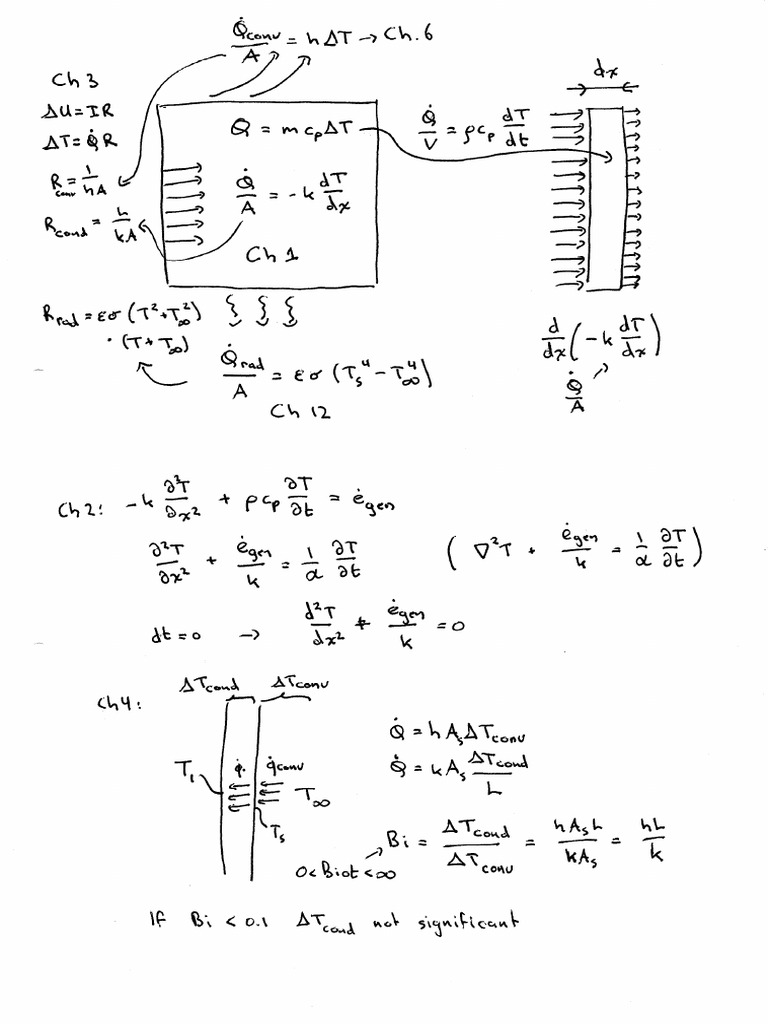 Q̇conv/A = hΔT → Ch. 6
Ch 3
ΔU = IR
ΔT = Q̇R
Rconv = 1/hA
Rcond = L/kA
Q = m cp ΔT
Q̇/A = -k dT/dx
Ch 1
Q̇/V = ρcp dT/dt
dx
d/dx(-k dT/dx)
Q̇/A
Rrad = εσ (T²+T∞²)
· (T+T∞)
Q̇rad/A = εσ (Ts⁴ - T∞⁴)
Ch 12
Ch 2: -k ∂²T/∂x² + ρcp ∂T/∂t = ėgen
∂²T/∂x² + ėgen/k = 1/α ∂T/∂t (∇²T + ėgen/k = 1/α ∂T/∂t)
dt = 0 → d²T/dx² + ėgen/k = 0
Ch 4: ΔTcond ΔTconv
T1 q̇. q̇conv T∞
Ts
Q̇ = hAsΔTconv
Q̇ = kAs ΔTcond/L
Bi = ΔTcond/ΔTconv = hAsL/kAs = hL/k
0 < Biot < ∞
If Bi < 0.1 ΔTcond not significant